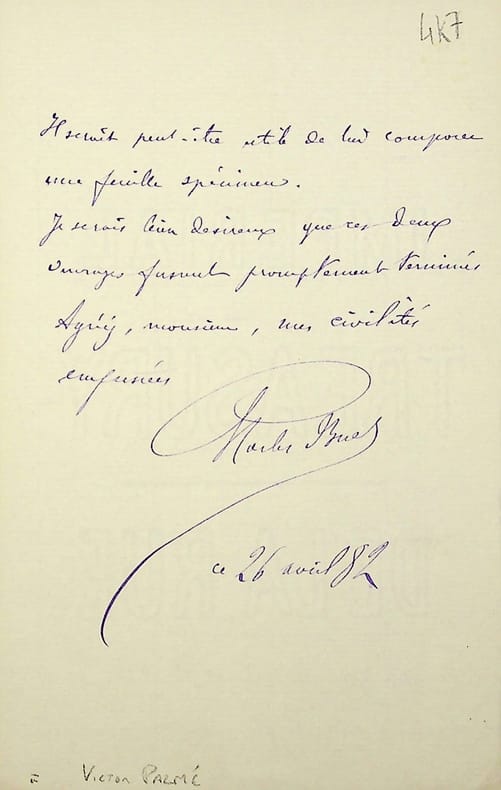 4K7
Il serait peut-être utile de lui composer
une feuille spécimen.
Je serais bien desireux que ces deux
ouvrages fussent promptement terminés
Agréez, monsieur, mes civilités
empressées
Charles Buet
ce 26 avril 82
Victor Palmé